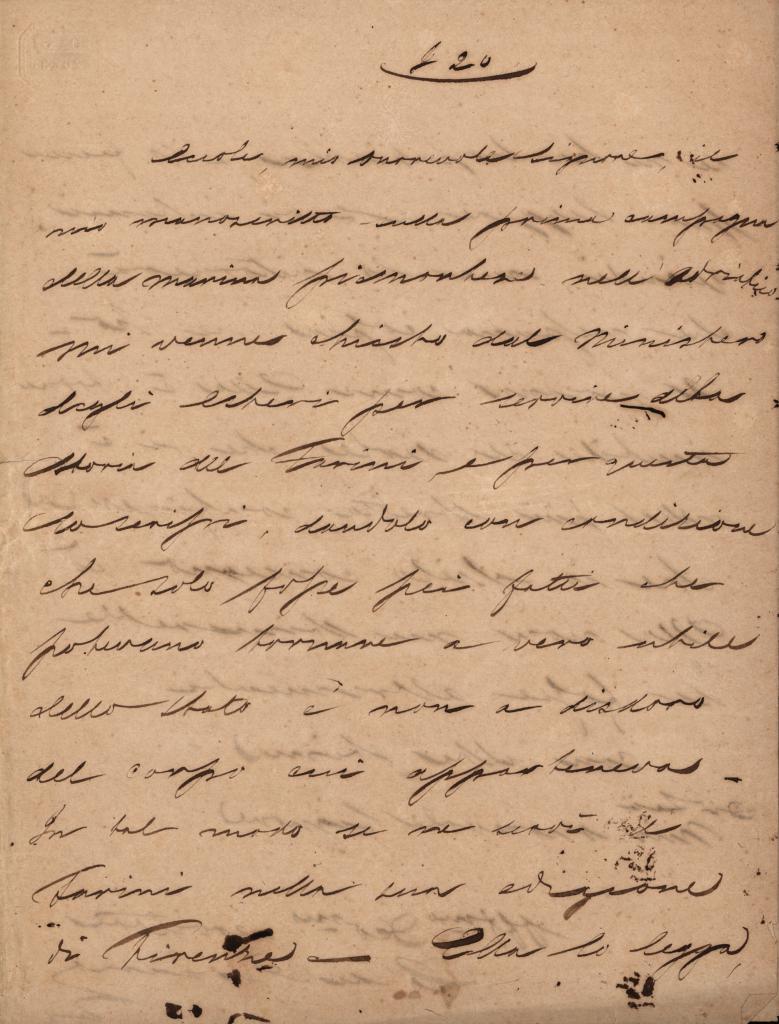 20
Eccole, mio onorevole signore, il
mio manoscritto sulla prima campagna
della marina piemontese nell'Adriatico
mi venne chiesto dal Ministero
degli Esteri per servire alla
storia del Farini, e per questa
lo scrissi, dandolo con condizione
che solo fosse pei fatti che
potevano tornare a vero utile
dello Stato e non a disdoro
del corpo cui apparteneva -
In tal modo se ne servì il
Farini nella sua edizione
di Firenze — Ella lo legga,